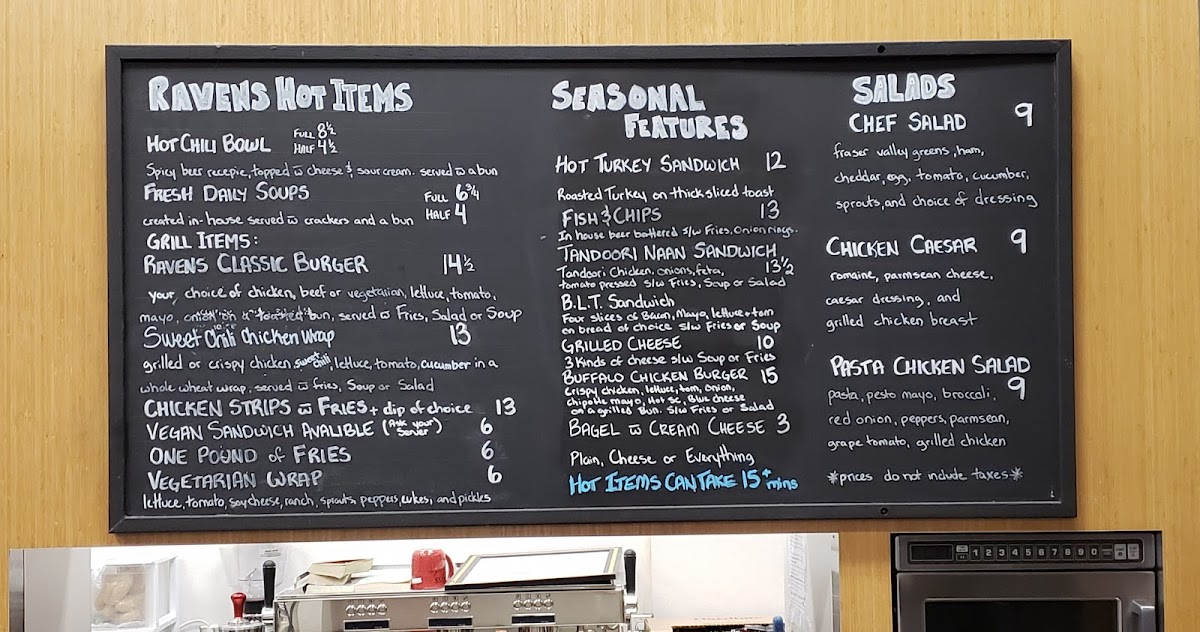 RAVENS HOT ITEMS
HOT CHILI BOWL FULL 8½
HALF 4½
Spicy beer recepie, topped w cheese & sour cream. served w a bun
FRESH DAILY SOUPS FULL 6¾
created in-house served w crackers and a bun HALF 4
GRILL ITEMS:
RAVENS CLASSIC BURGER 14½
your choice of chicken, beef or vegetarian, lettuce, tomato,
mayo, onion on a toasted bun, served w Fries, Salad or Soup
Sweet Chili Chicken Wrap 13
grilled or crispy chicken sweet chili, lettuce, tomato, cucumber in a
whole wheat wrap, served w fries, Soup or Salad
CHICKEN STRIPS w FRIES + dip of choice 13
VEGAN SANDWICH AVALIBLE (Ask your Server) 6
ONE POUND of FRIES 6
VEGETARIAN WRAP 6
lettuce, tomato, soy cheese, ranch, sprouts, peppers, cukes, and pickles
SEASONAL
FEATURES
HOT TURKEY SANDWICH 12
Roasted Turkey on thick sliced toast
FISH & CHIPS 13
In house beer battered s/w Fries, Onion rings.
TANDOORI NAAN SANDWICH
Tandoori Chicken, onions, feta, 13½
tomato pressed s/w Fries, Soup or Salad
B.L.T. Sandwich
Four slices of Bacon, Mayo, lettuce + tom
on bread of choice s/w Fries or Soup
GRILLED CHEESE 10
3 Kinds of cheese s/w Soup or Fries
BUFFALO CHICKEN BURGER 15
Crispy chicken, lettuce, tom, onion,
chipotle mayo, Hot sc, Blue cheese
on a grilled Bun. s/w Fries or Salad
BAGEL w CREAM CHEESE 3
Plain, Cheese or Everything
HOT ITEMS CAN TAKE 15+ mins
SALADS
CHEF SALAD 9
fraser valley greens, ham,
cheddar, egg, tomato, cucumber,
sprouts, and choice of dressing
CHICKEN CAESAR 9
romaine, parmsean cheese,
caesar dressing, and
grilled chicken breast
PASTA CHICKEN SALAD
9
pasta, pesto mayo, broccoli,
red onion, peppers, parmsean,
grape tomato, grilled chicken
*prices do not include taxes*
1 2 3 4 5 6 7 8 9 0